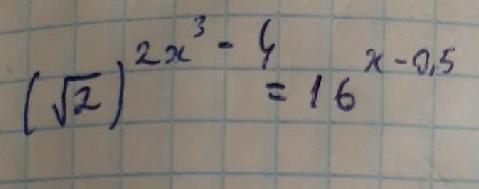 (√2)^{2x³ - 4} = 16^{x - 0,5}